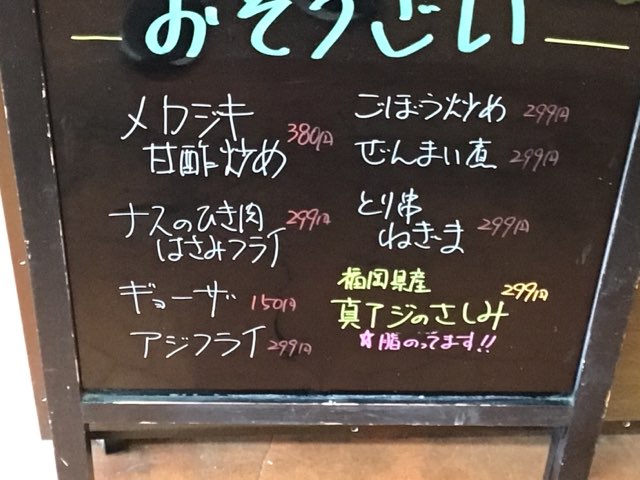 おそうざい
メカジキ
甘酢炒め 380円
ナスのひき肉 299円
はさみフライ
ギョーザ 150円
アジフライ 299円
ごぼう炒め 299円
ぜんまい煮 299円
とり串
ねぎま 299円
福岡県産 299円
真アジのさしみ
☆脂のってます!!